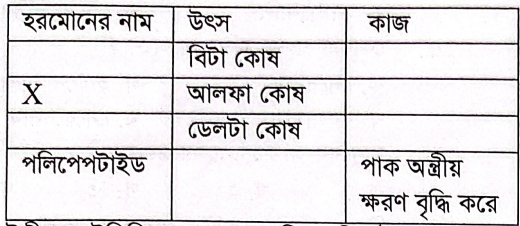 হরমোনের নাম উৎস কাজ
বিটা কোষ
X আলফা কোষ
ডেলটা কোষ
পলিপেপটাইড পাক অন্ত্রীয়
ক্ষরণ বৃদ্ধি করে